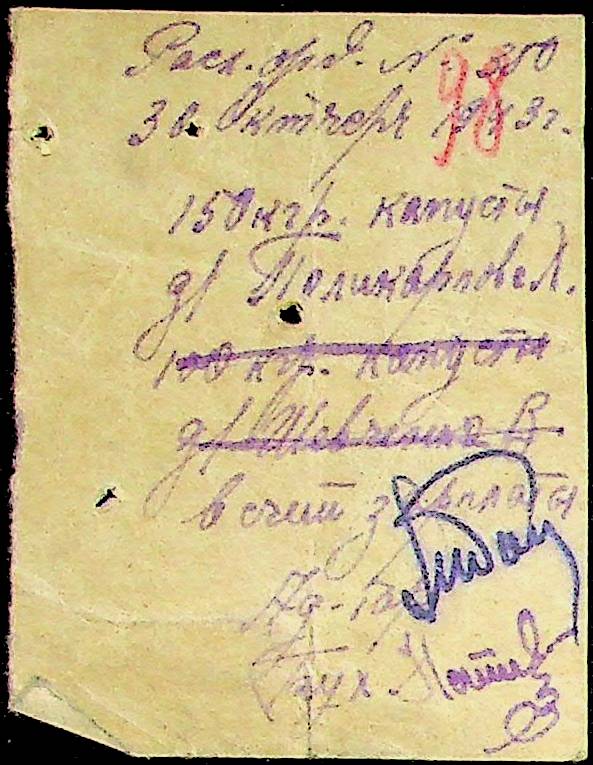 Расх. орд. № 350
98
30 Октября 1943 г.
150 кгр. капусты
д/ Поликарповой Л.
100 кгр. капусты
д/ Шевченко В
в счет зарплаты
Бух.